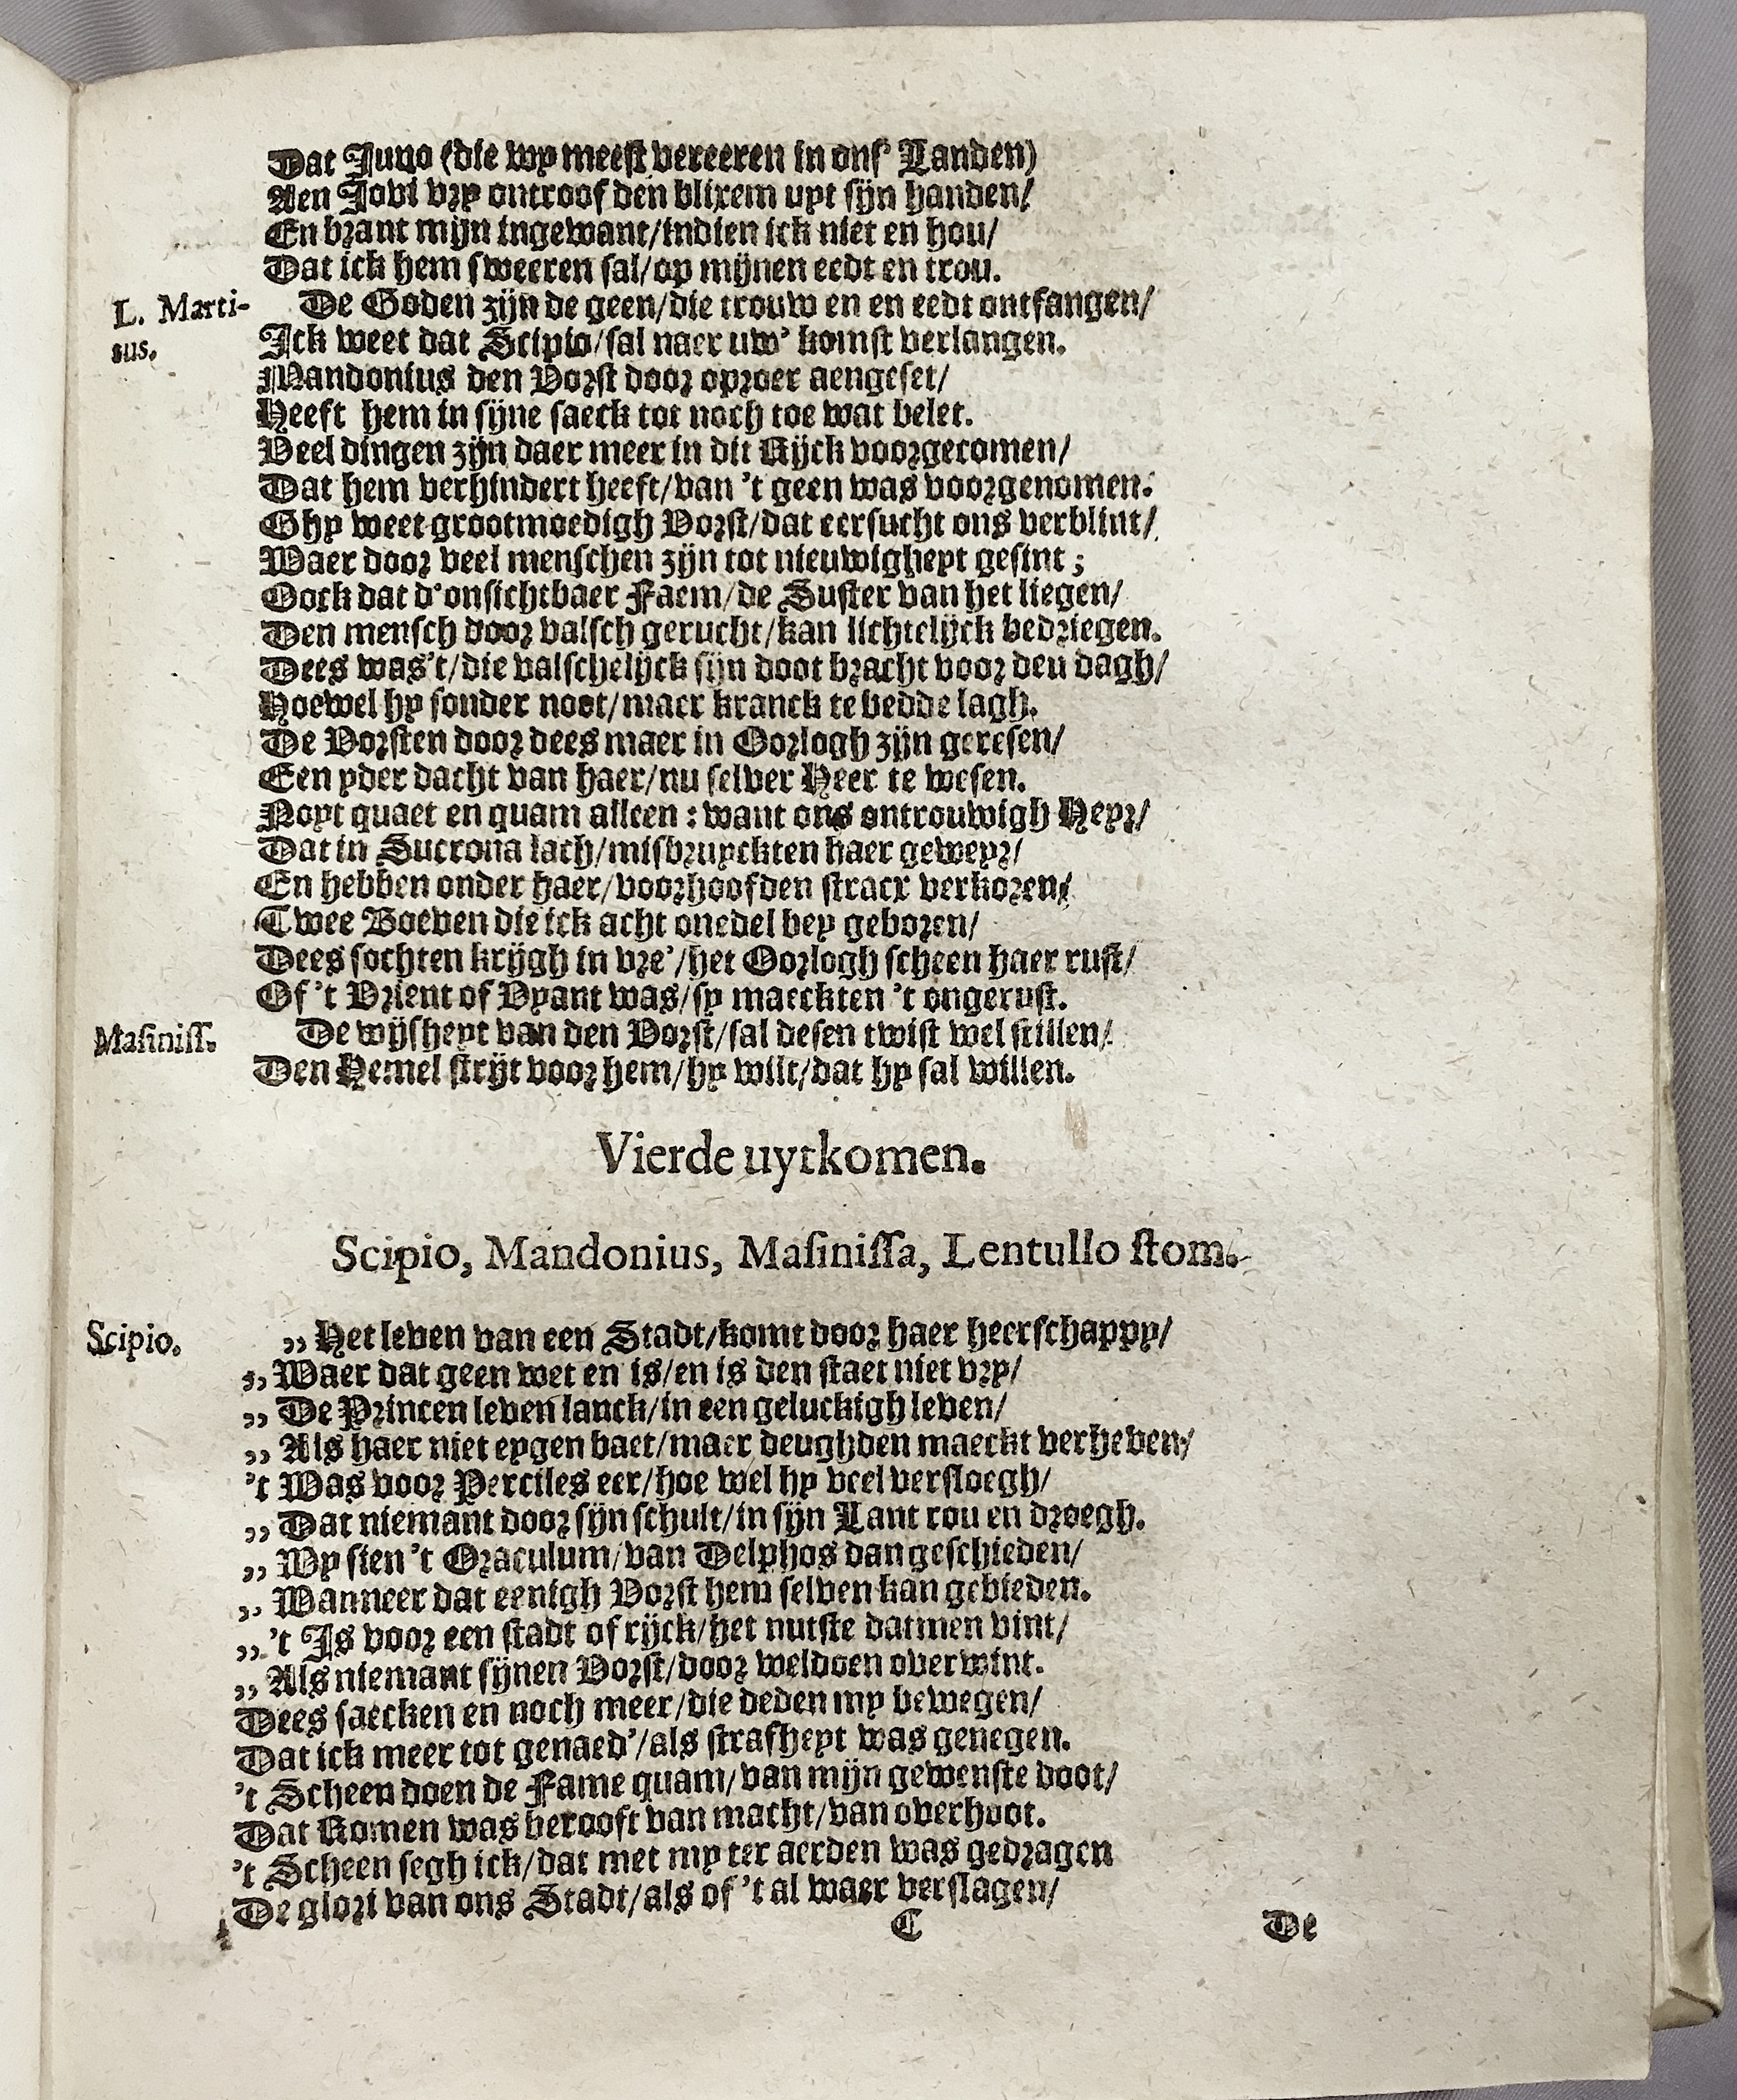 Dat Juno (die wy meest vereeren in ons' Landen)
Aen Jovi vry ontroof den blixem uyt sijn handen/
En brant mijn ingewant/indien ick niet en hou/
Dat ick hem sweeren sal/op mijnen eedt en trou.
L. Marti-
sus.
De Goden zijn de geen/die trouw en en eedt ontfangen/
Ick weet dat Scipio/sal naer uw' komst verlangen.
Mandonius den Vorst door oproer aengeset/
Heeft hem in sijne saeck tot noch toe wat belet.
Veel dingen zijn daer meer in dit Rijck voorgecomen/
Dat hem verhindert heeft/van 't geen was voorgenomen.
Ghy weet grootmoedigh Vorst/dat eersucht ons verblint/
Waer door veel menschen zijn tot nieuwigheyt gesint;
Oock dat d'onsichtbaer Faem/de Suster van het liegen/
Den mensch door valsch gerucht/kan lichtelijck bedriegen.
Dees was't/die valschelijck sijn doot bracht voor den dagh/
Hoewel hy sonder noot/maer kranck te bedde lagh.
De Vorsten door dees maer in Oorlogh zijn geresen/
Een yder dacht van haer/nu selver Heer te wesen.
Noyt quaet en quam alleen: want ons ontrouwigh Heyr/
Dat in Sucrona lach/misbruyckten haer geweyr/
En hebben onder haer/voorhoofden stracx verkoren/
Twee Boeven die ick acht onedel bey geboren/
Dees sochten krijgh in vre'/het Oorlogh scheen haer rust/
Of 't Vrient of Vyant was/sy maeckten 't ongerust.
Masiniss.
De wijsheyt van den Vorst/sal desen twist wel stillen/
Den Hemel strijt voor hem/hy wilt/dat hy sal willen.
Vierde uytkomen.
Scipio, Mandonius, Masinissa, Lentullo stom.
Scipio.
,, Het leven van een Stadt/komt door haer heerschappy/
,, Waer dat geen wet en is/en is den staet niet vry/
,, De Princen leven lanck/in een geluckigh leven/
,, Als haer niet eygen baet/maer deughden maeckt verheven/
't Was voor Perciles eer/hoe wel hy veel versloegh/
,, Dat niemant door sijn schult/in sijn Lant rou en droegh.
,, Wy sien 't Oraculum/van Delphos dan geschieden/
,, Wanneer dat eenigh Vorst hem selven kan gebieden.
,, 't Is voor een stadt of rijck/het nutste datmen vint/
,, Als niemant sijnen Vorst/door weldoen overwint.
Dees saecken en noch meer/die deden my bewegen/
Dat ick meer tot genaed'/als strafheyt was genegen.
't Scheen doen de Fame quam/van mijn gewenste doot/
Dat Romen was berooft van macht/van overhoot.
't Scheen segh ick/dat met my ter aerden was gedragen
De glori van ons Stadt/als of 't al waer verslagen/
C
De